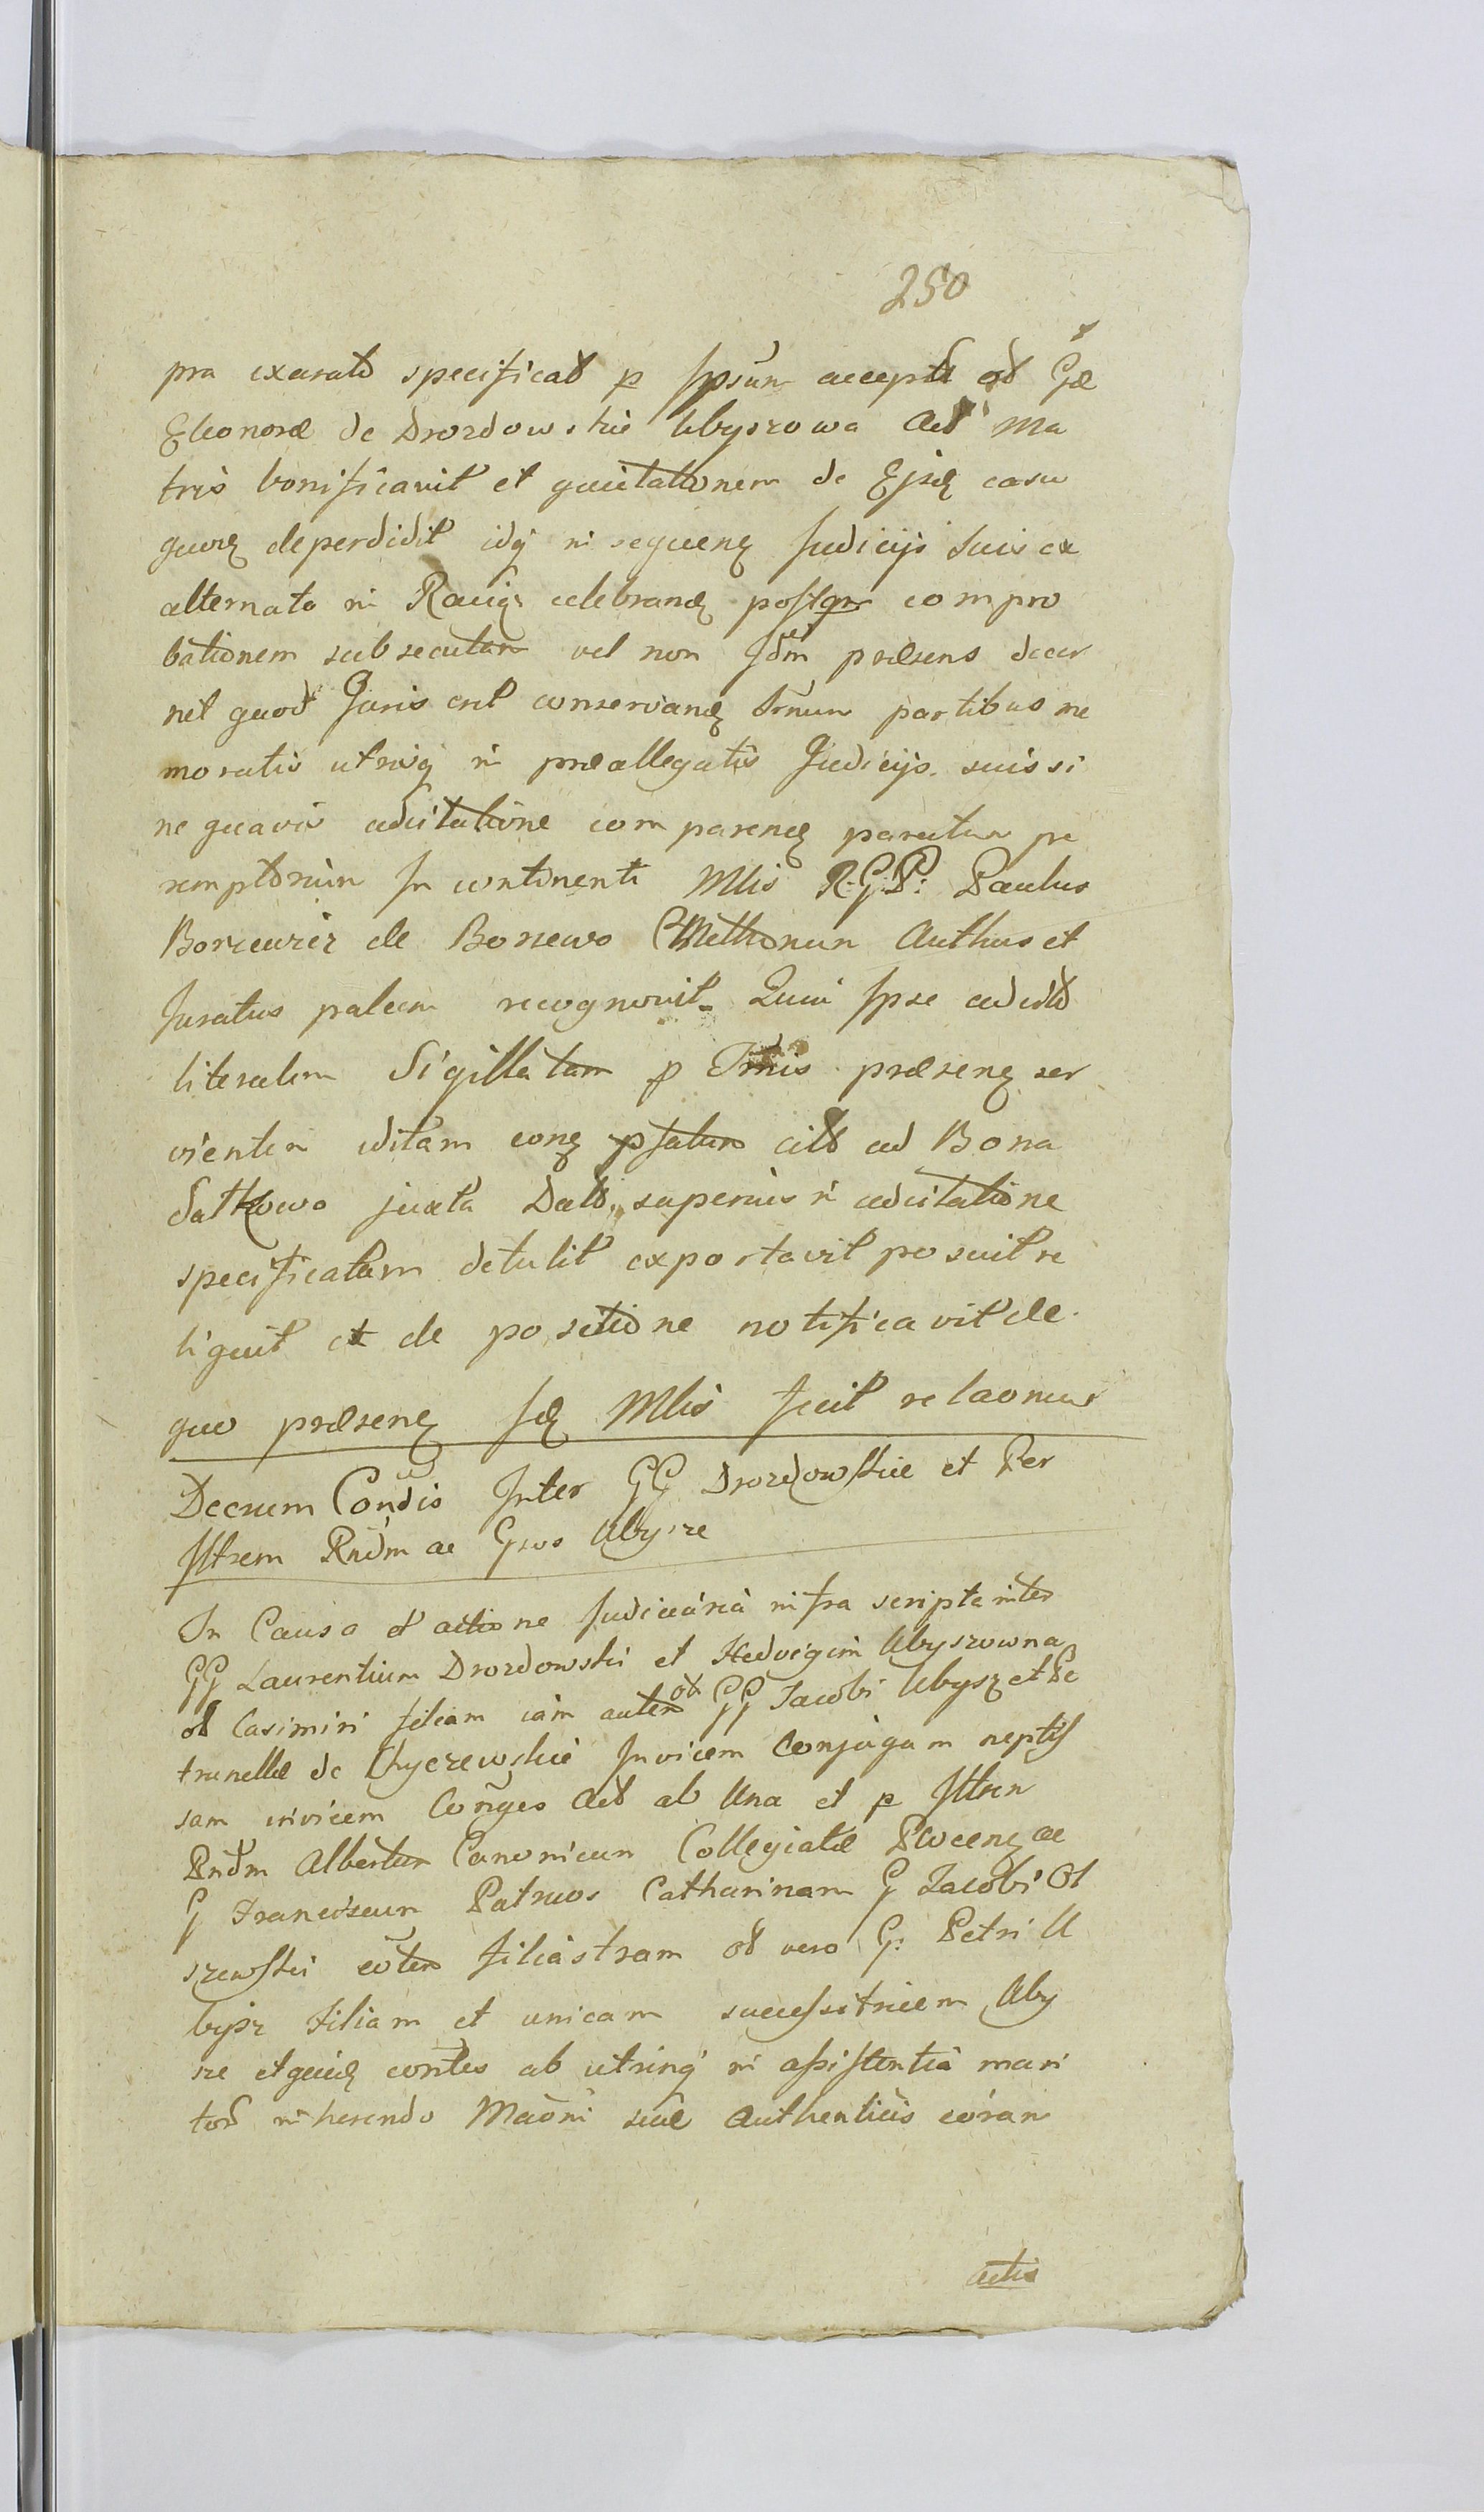 250
pra exarato specificat p Ipsum accepta ob Gæ
Eleonoræ de Drozdowskie Ubyszowa Act Ma
tris bonificavit et quietationem de Ejsq casu
quoq deperdidit idq in sequenq Judicijs Suis ex
alternata in Raciąż celebrandq postqm compro
bationem subsecutam vel non Idm præsens decer
net quod Juris erit conservandq Trnum partibus me
moratis utrisq in præallegatis Judicijs suis si
ne quavis adcitatione comparendq paratum pe
remptorium In continenti Mlis R: G: P: Paulus
Borzewicz de Borzewo Methonum Authus et
Juratus palam recognovit Quia Ipse adcitõ
literalem Sigillatam p Trnis præsenq ser
vientem editam conq psatum citt ad Bona
Satkowo juxta Datt superius in adcitatione
specificatam detulit exportavit posuit re
liquit et de positione notificavit de
quo præsenq Iq Mlis fecit relaonem
Decrum Condis Inter GG Drozdowskie et Per
Illrem Rndm ac Gsos Ubysze
In Causa et actione Judiciaria infra scripta inter
GG Laurentium Drozdowski et Hedvigim Ubyszowna
ol Casimiri filiam iam autem ol GG Jacobi Ubysz et Pe
trunellæ de Chyczewskie Invicem Conjugum neptis
sam invicem Conges Act ab Una et p Illrem
Rndm Albertum Canonicum Collegiatæ Plocenq ac
G Franciscum Patruos Catharinam G Jacobi Ol
szewski eotem filiastram ol vero G: Petri U
bysz Filiam et unicam successitricem Uby
sze et quiq contes ab utrinq in assistentia mari
tor inherendo Maõni suæ Authenticis coram
actis